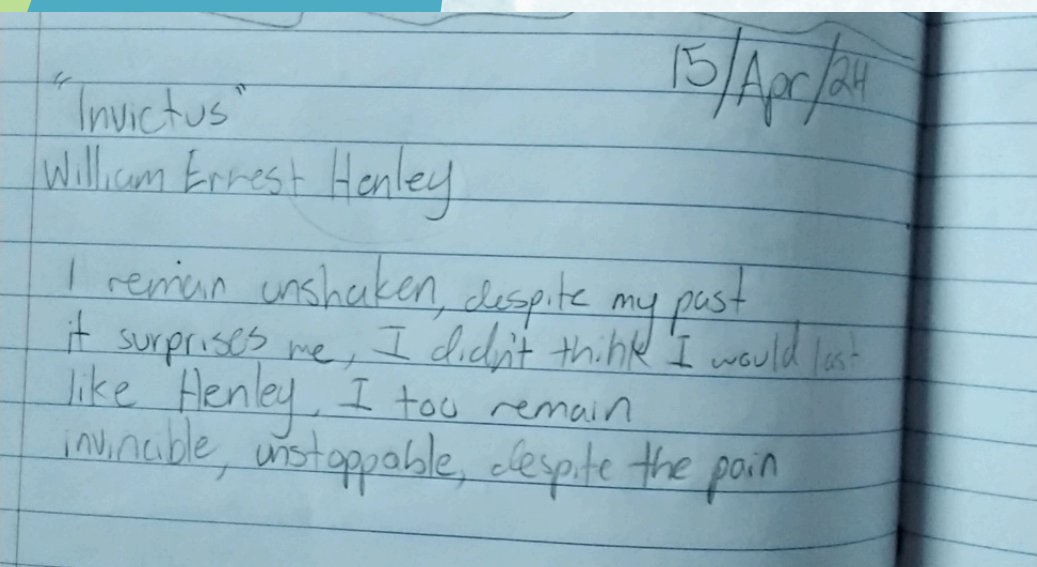 15/Apr/24
"Invictus"
William Ernest Henley
I remain unshaken, despite my past
it surprises me, I didn't think I would last
like Henley, I too remain
invincible, unstoppable, despite the pain